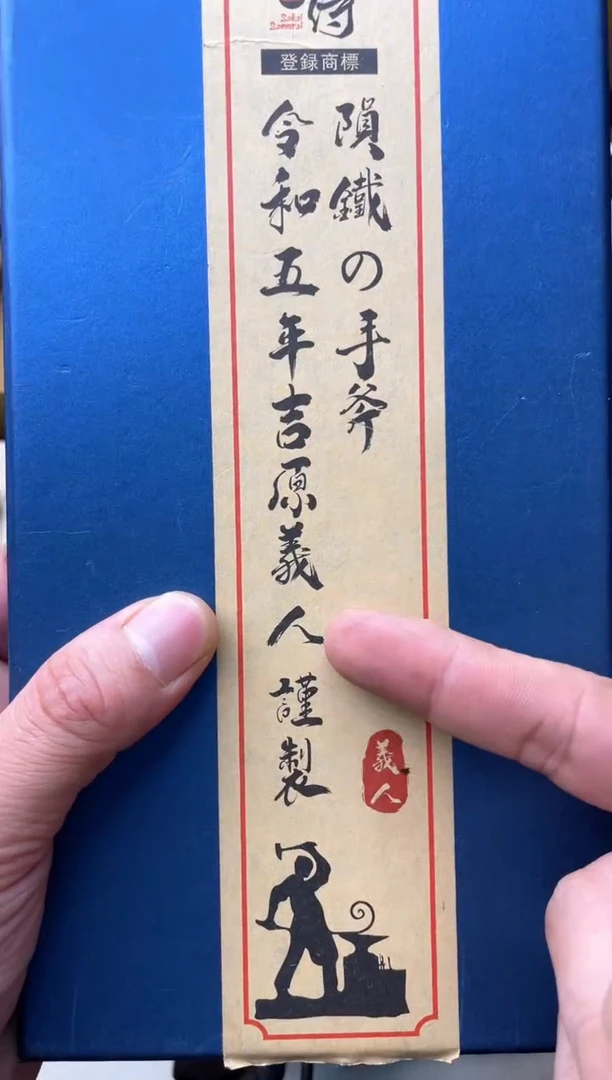 侍
Sakai
Samurai
登録商標
隕鐵の手斧
令和五年吉原義人謹製
義人